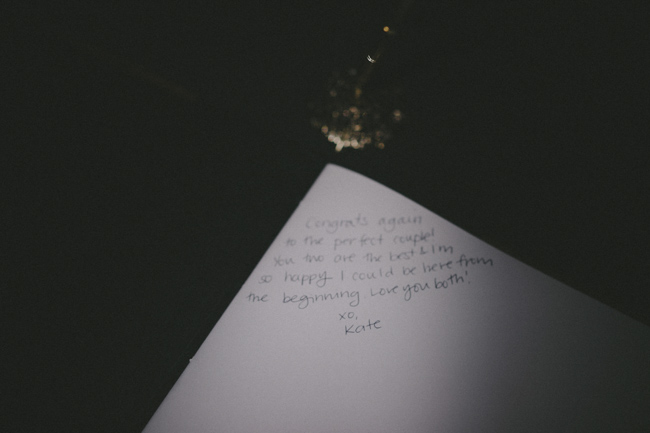 Congrats again
to the perfect couple!
You two are the best & I'm
so happy I could be here from
the beginning. Love you both!
xo,
Kate